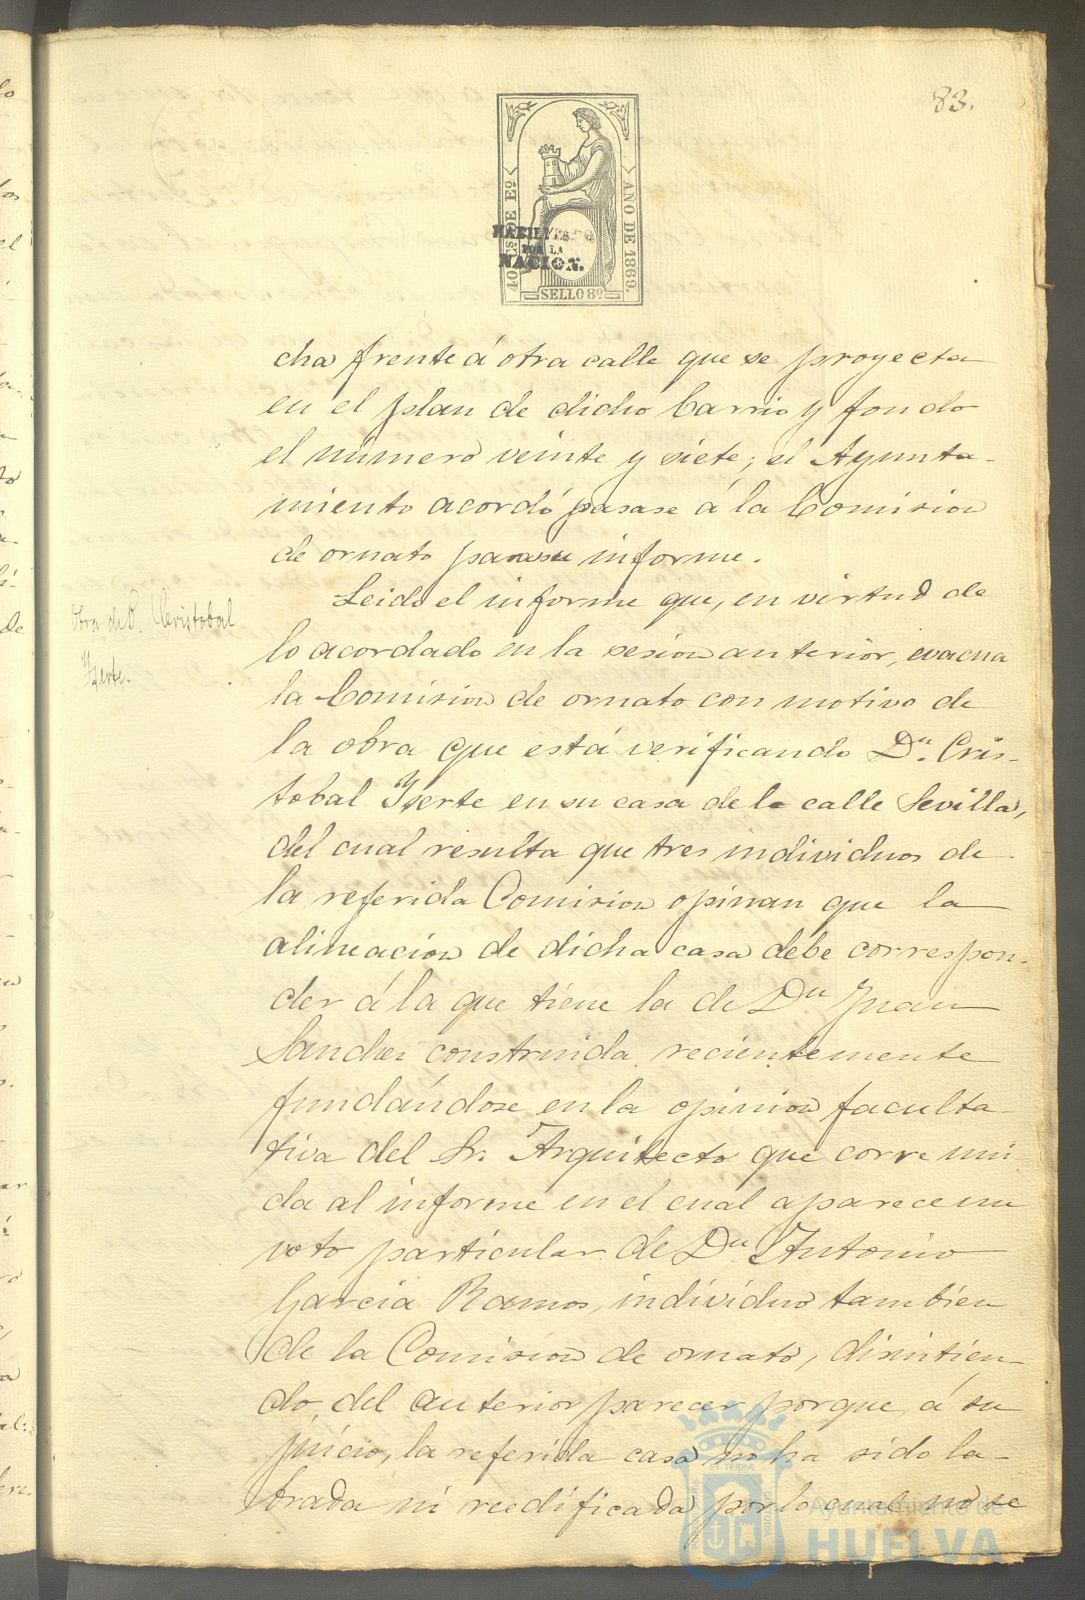 83.
40 Ms. DE Eo.
AÑO DE 1869.
HABILITADO
POR LA
NACION.
SELLO 8º
cha frente á otra calle que se proyecta
en el plan de dicho barrio y fondo
el número veinte y siete; el Ayunta-
miento acordó pasase á la Comision
de ornato para su informe.
Obra de D. Cristobal
Yserte.
Leido el informe que, en virtud de
lo acordado en la sesion anterior, evacua
la Comision de ornato con motivo de
la obra que está verificando Dn. Cris-
tobal Yserte en su casa de la calle Sevilla,
del cual resulta que tres individuos de
la referida Comision opinan que la
alineacion de dicha casa debe correspon-
der á la que tiene la de Dn Juan
Sanchez construida recientemente
fundándose en la opinion faculta-
tiva del Sr. Arquitecto que corre uni-
da al informe en el cual aparece un
voto particular de Dn Antonio
Garcia Ramos, individuo tambien
de la Comision de ornato, disintien-
do del anterior parecer porque, á su
juicio, la referida casa no ha sido la-
brada ni reedificada por lo cual no se
Ayuntamiento de
HUELVA